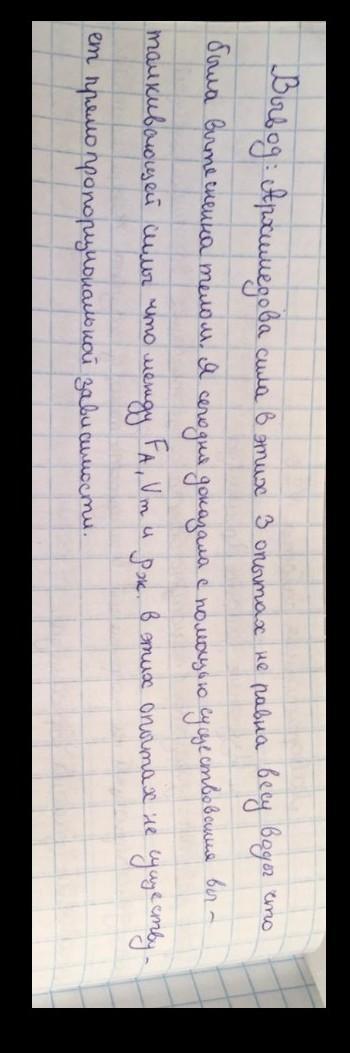 Вывод: Архимедова сила в этих 3 опытах не равна весу воды что
была вытеснена телом. Я сегодня доказала с помощью существовавшие вы-
талкивающей силы что между FA, Vт и ρж. в этих опытах не существу-
ет прямо пропорциональной зависимости.